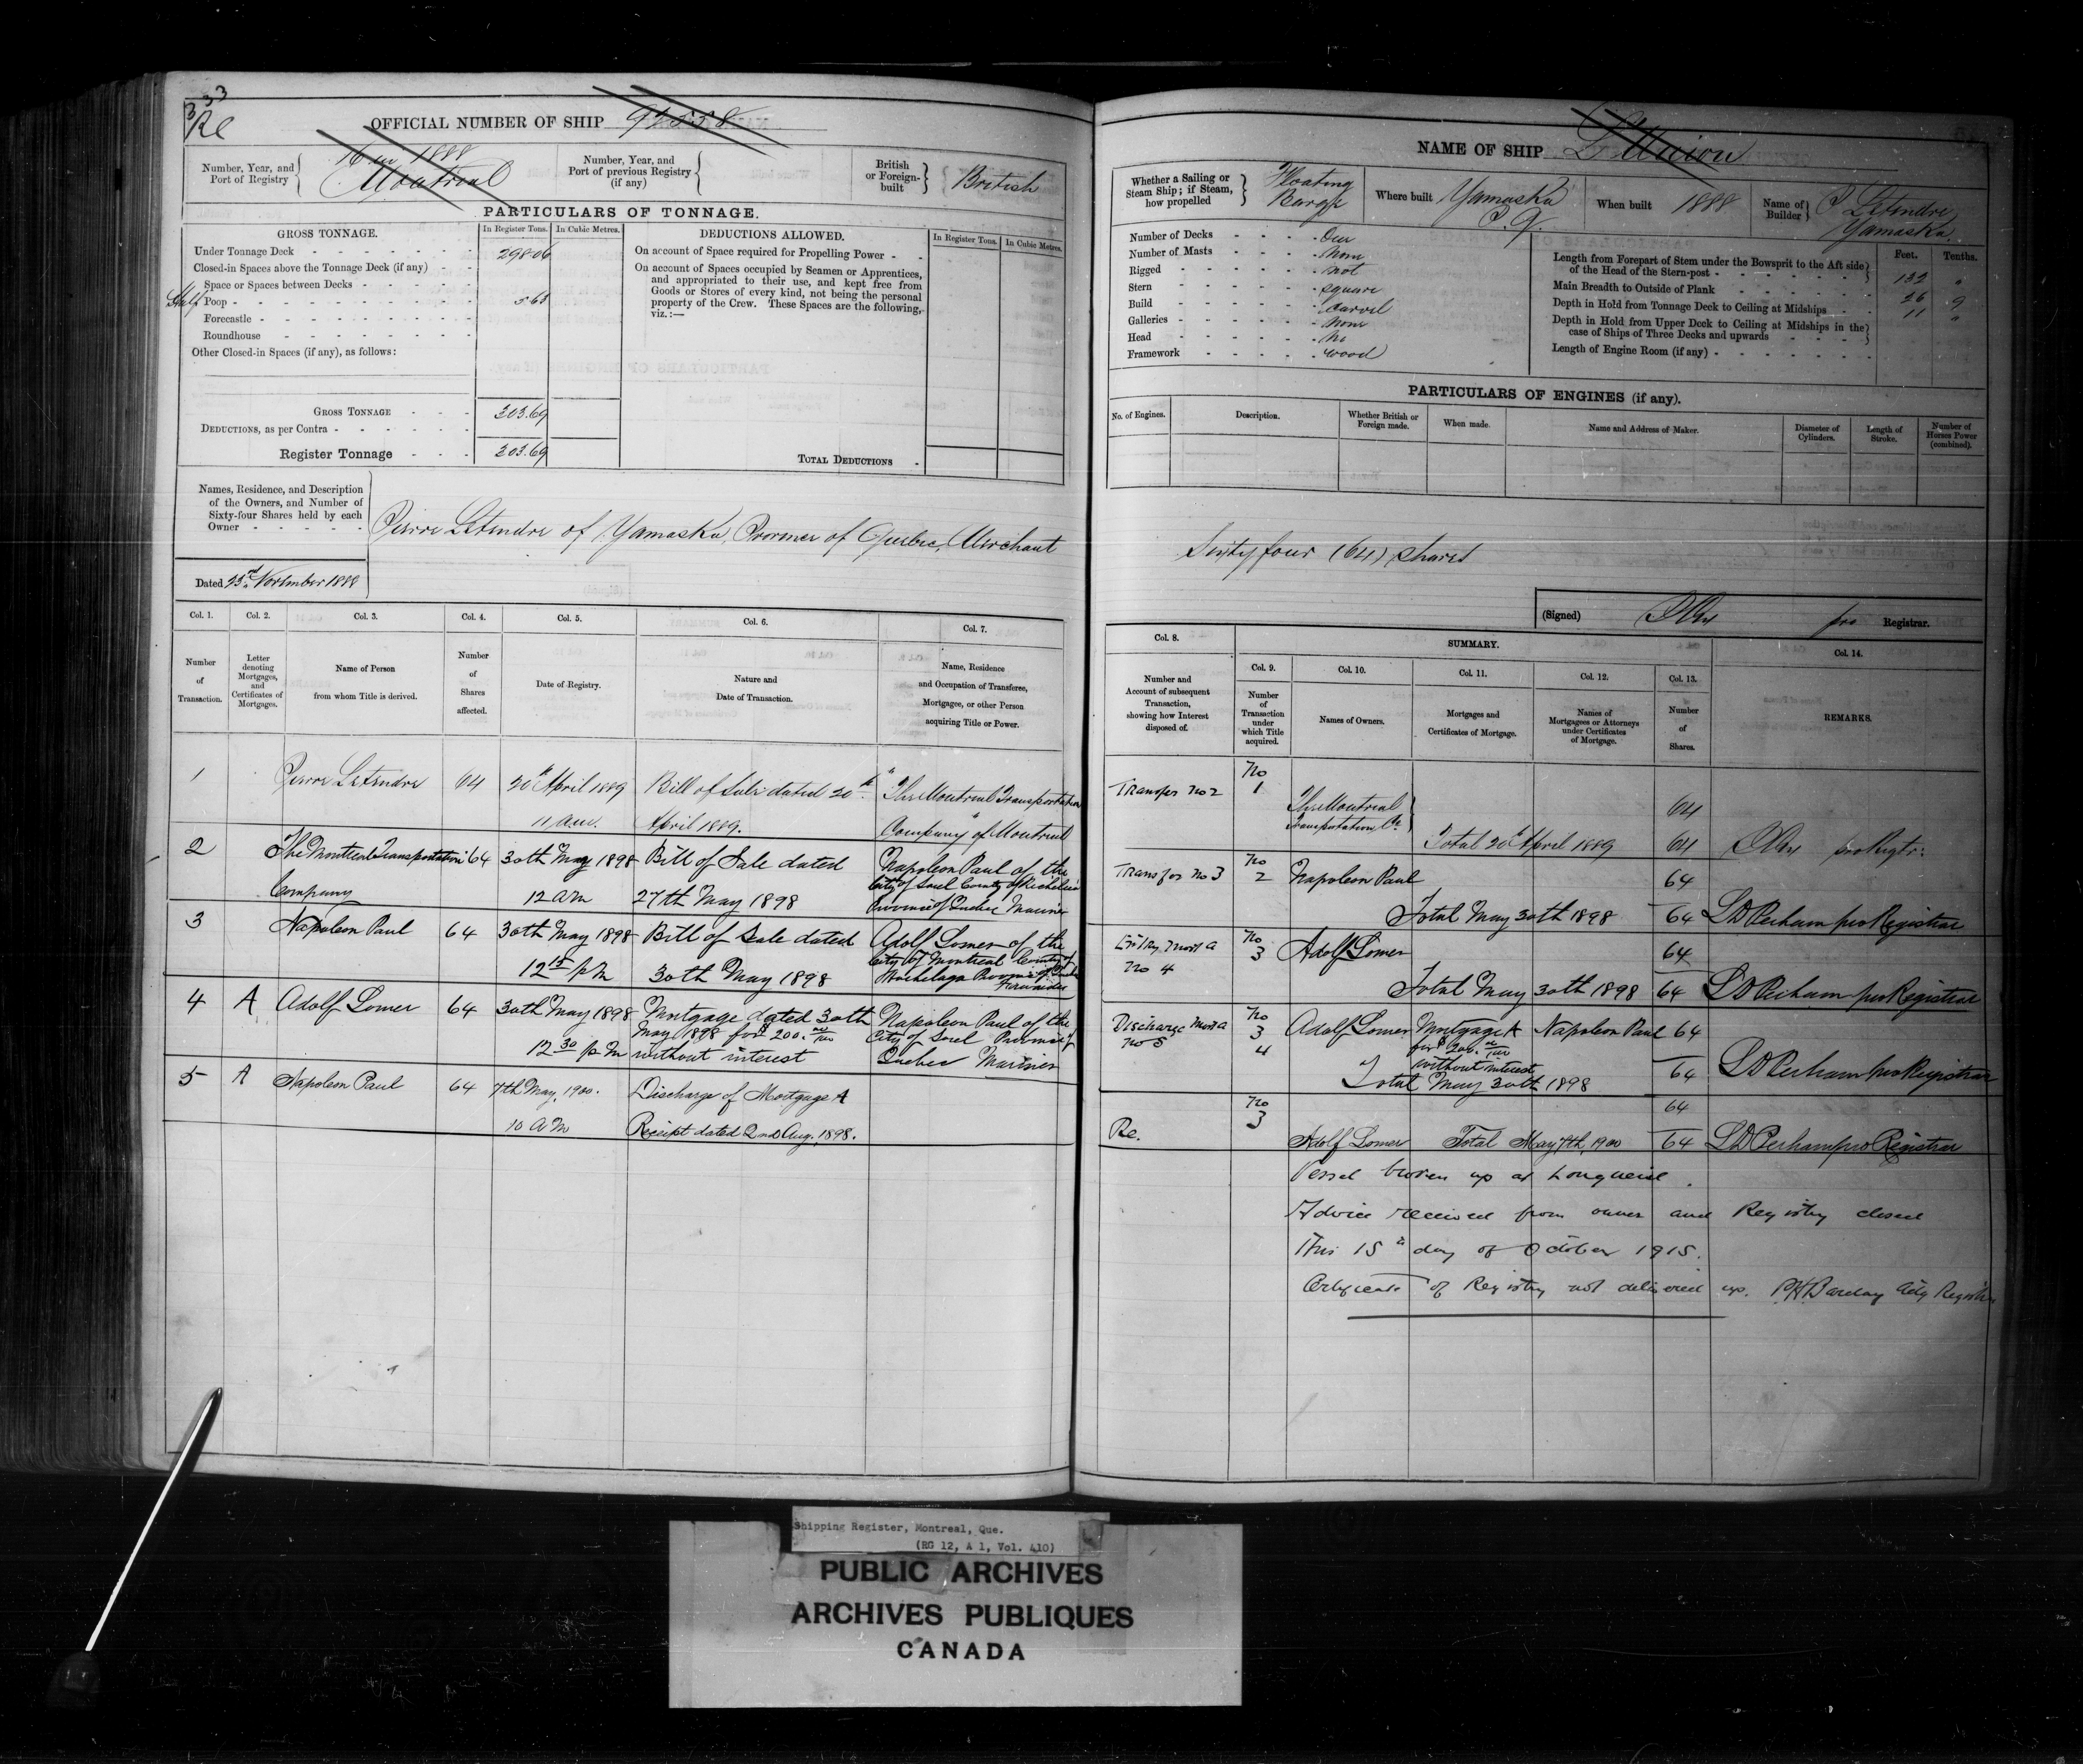 333
Re
OFFICIAL NUMBER OF SHIP 92558
Number, Year, and Port of Registry
16 in 1888
Montreal
Number, Year, and Port of previous Registry (if any)
British or Foreign-built
British
PARTICULARS OF TONNAGE.
GROSS TONNAGE.
In Register Tons.
In Cubic Metres.
DEDUCTIONS ALLOWED.
In Register Tons.
In Cubic Metres.
Under Tonnage Deck 298.06
Closed-in Spaces above the Tonnage Deck (if any)
Space or Spaces between Decks
Half Poop 5.63
Forecastle
Roundhouse
Other Closed-in Spaces (if any), as follows:
On account of Space required for Propelling Power
On account of Spaces occupied by Seamen or Apprentices,
and appropriated to their use, and kept free from
Goods or Stores of every kind, not being the personal
property of the Crew. These Spaces are the following,
viz.:—
GROSS TONNAGE 303.69
DEDUCTIONS, as per Contra
Register Tonnage 303.69
TOTAL DEDUCTIONS
Names, Residence, and Description
of the Owners, and Number of
Sixty-four Shares held by each
Owner
Pierre Letendre of Yamaska, Province of Quebec, Merchant
Dated 23rd November 1888
Col. 1.
Col. 2.
Col. 3.
Col. 4.
Col. 5.
Col. 6.
Col. 7.
Number of Transaction.
Letter denoting Mortgages, and Certificates of Mortgages.
Name of Person from whom Title is derived.
Number of Shares affected.
Date of Registry.
Nature and Date of Transaction.
Name, Residence and Occupation of Transferee, Mortgagee, or other Person acquiring Title or Power.
1 Pierre Letendre 64 20th April 1889 Bill of Sale dated 20th "The Montreal Transportation
11 a.m. April 1889. Company" of Montreal
2 The Montreal Transportation 64 30th May 1898 Bill of Sale dated Napoleon Paul of the
City of Sorel County of Richelieu
Company 12 am 27th May 1898 Province of Quebec Mariner
3 Napoleon Paul 64 30th May 1898 Bill of Sale dated Adolf Lomer of the
City of Montreal County of
12 15 pm 30th May 1898 Hochelaga Province of Quebec
Forwarder
4 A Adolf Lomer 64 30th May 1898 Mortgage dated 30th Napoleon Paul of the
May 1898 for $200. no/100 City of Sorel Province of
12 30 pm without interest Quebec Mariner
5 A Napoleon Paul 64 7th May, 1900. Discharge of Mortgage A
10 A M Receipt dated 2nd Aug. 1898.
NAME OF SHIP L'Union
Whether a Sailing or Steam Ship; if Steam, how propelled
Floating Barge
Where built Yamaska P.Q.
When built 1888
Name of Builder P Letendre Yamaska
Number of Decks One
Number of Masts None
Rigged not
Stern square
Build Carvel
Galleries None
Head No
Framework wood
Feet.
Tenths.
Length from Forepart of Stem under the Bowsprit to the Aft side
of the Head of the Stern-post 132 "
Main Breadth to Outside of Plank 26 9
Depth in Hold from Tonnage Deck to Ceiling at Midships 11 "
Depth in Hold from Upper Deck to Ceiling at Midships in the
case of Ships of Three Decks and upwards
Length of Engine Room (if any)
PARTICULARS OF ENGINES (if any).
No. of Engines.
Description.
Whether British or Foreign made.
When made.
Name and Address of Maker.
Diameter of Cylinders.
Length of Stroke.
Number of Horses Power (combined).
Sixty four (64) shares
(Signed)
pro Registrar.
Col. 8.
SUMMARY.
Col. 14.
Col. 9.
Col. 10.
Col. 11.
Col. 12.
Col. 13.
Number and Account of subsequent Transaction, showing how Interest disposed of.
Number of Transaction under which Title acquired.
Names of Owners.
Mortgages and Certificates of Mortgage.
Names of Mortgagees or Attorneys under Certificates of Mortgage.
Number of Shares.
REMARKS.
Transfer No 2 No 1 The Montreal
Transportation Co. 64
Total 20th April 1889 64 pro Regtr:
Transfer No 3 No 2 Napoleon Paul 64
Total May 30th 1898 64 L D Perham pro Registrar
Entry Mortg No 4 No 3 Adolf Lomer 64
Total May 30th 1898 64 L D Perham pro Registrar
Discharge Mortg No 5 No 3 4 Adolf Lomer Mortgage A Napoleon Paul 64
for $200. no/100
without interest
Total May 30th 1898 64 L D Perham pro Registrar
Re. No 3 64
Adolf Lomer Total May 7th, 1900 64 L D Perham pro Registrar
Vessel broken up at Longueuil.
Advice received from owner and Registry closed
this 15th day of October 1915.
Certificate of Registry not delivered up. P.H. Barclay Actg Registrar
Shipping Register, Montreal, Que.
(RG 12, A 1, Vol. 410)
PUBLIC ARCHIVES
ARCHIVES PUBLIQUES
CANADA